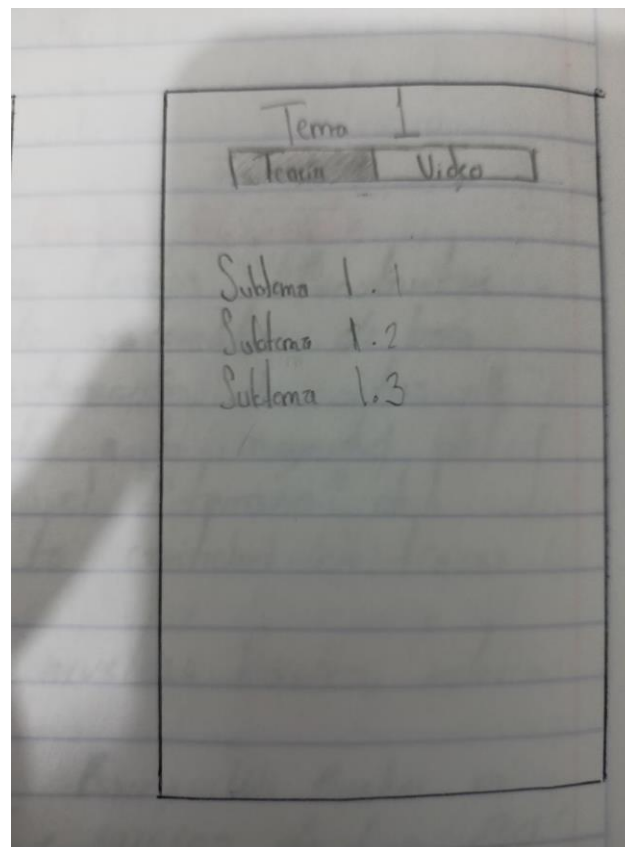 Tema 1
Teoria Video
Subtema 1.1
Subtema 1.2
Subtema 1.3